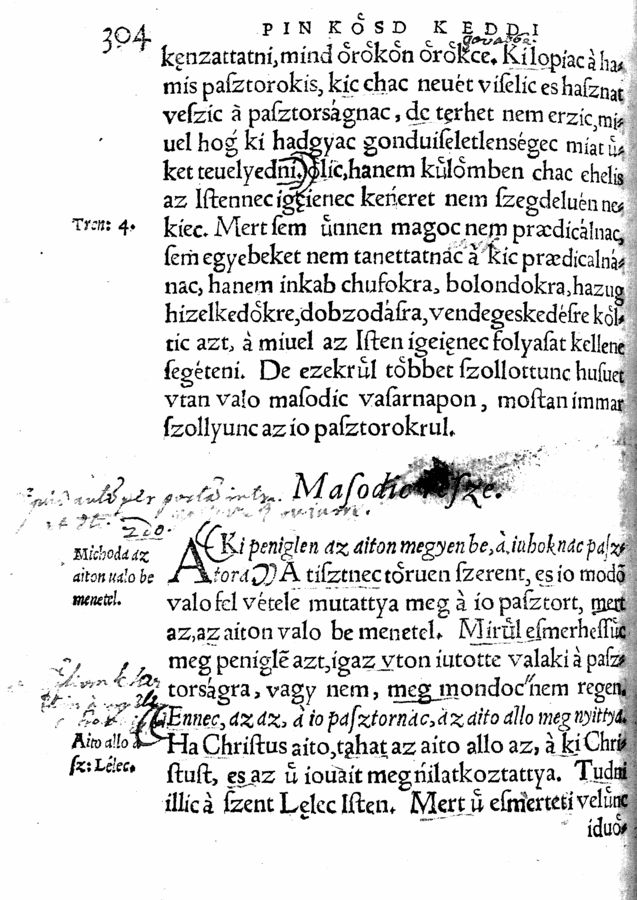 304
PINKO̊SD KEDDI
kęnzattatni, mind o̊ro̊ko̊n o̊ro̊kce. Kilopiac à ha-
mis paſztorokis, kic chac neuét viſelic es haſznat
veſzic à paſztorságnac, de tęrhet nem erzic, mi-
uel hoǵ ki hadgyac gonduiſeletlenségec miat ů-
ket teuelyedni. Ölic, hanem ků̊lo̊mben chac ehelis
az Iſtennec igęienec keńeret nem ſzegdeluén ne-
Tren: 4.
kiec. Mert ſem ů̊nnen magoc nem prædicálnac,
ſem egyebeket nem tanettatnac à kic prædicalná-
nac, hanem inkab chufokra, bolondokra, hazug
hizelkedo̊kre, dobzodáſra, vendegeskedéſre ko̊l-
tic azt, à miuel az Iſten igeienec folyaſat kellene
ſegéteni. De ezekrů̊l to̊bbet ſzollottunc huſuet
vtan valo maſodic vaſarnapon, moſtan immar
ſzollyunc az io paſztorokrul.
Maſodic reſze.
Michoda az
aiton ualo be
menetel.
AKi peniglen az aiton megyen be, à iuhoknac paſz-
tora. A tiſztnec to̊ruen ſzerent, es io modō
valo fel vétele mutattya meg à io paſztort, mert
az, az aiton valo be menetel. Mirů̊l eſmerheſſů̊c
meg peniglē azt, igaz vton iutotte valaki à paſz-
torságra, vagy nem, meg mondoc nem regen.
Ennec, az az, à io paſztornac, az aito allo meg nyittya.
Aito allo à
ſz: Lélec.
Ha Chriſtus aito, tahat az aito allo az, à ki Chri-
ſtuſt, es az ů̊ iouait megńilatkoztattya. Tudni
illic à ſzent Lęlec Iſten. Mert ů̊ eſmerteti velů̊nc
iduo̊-